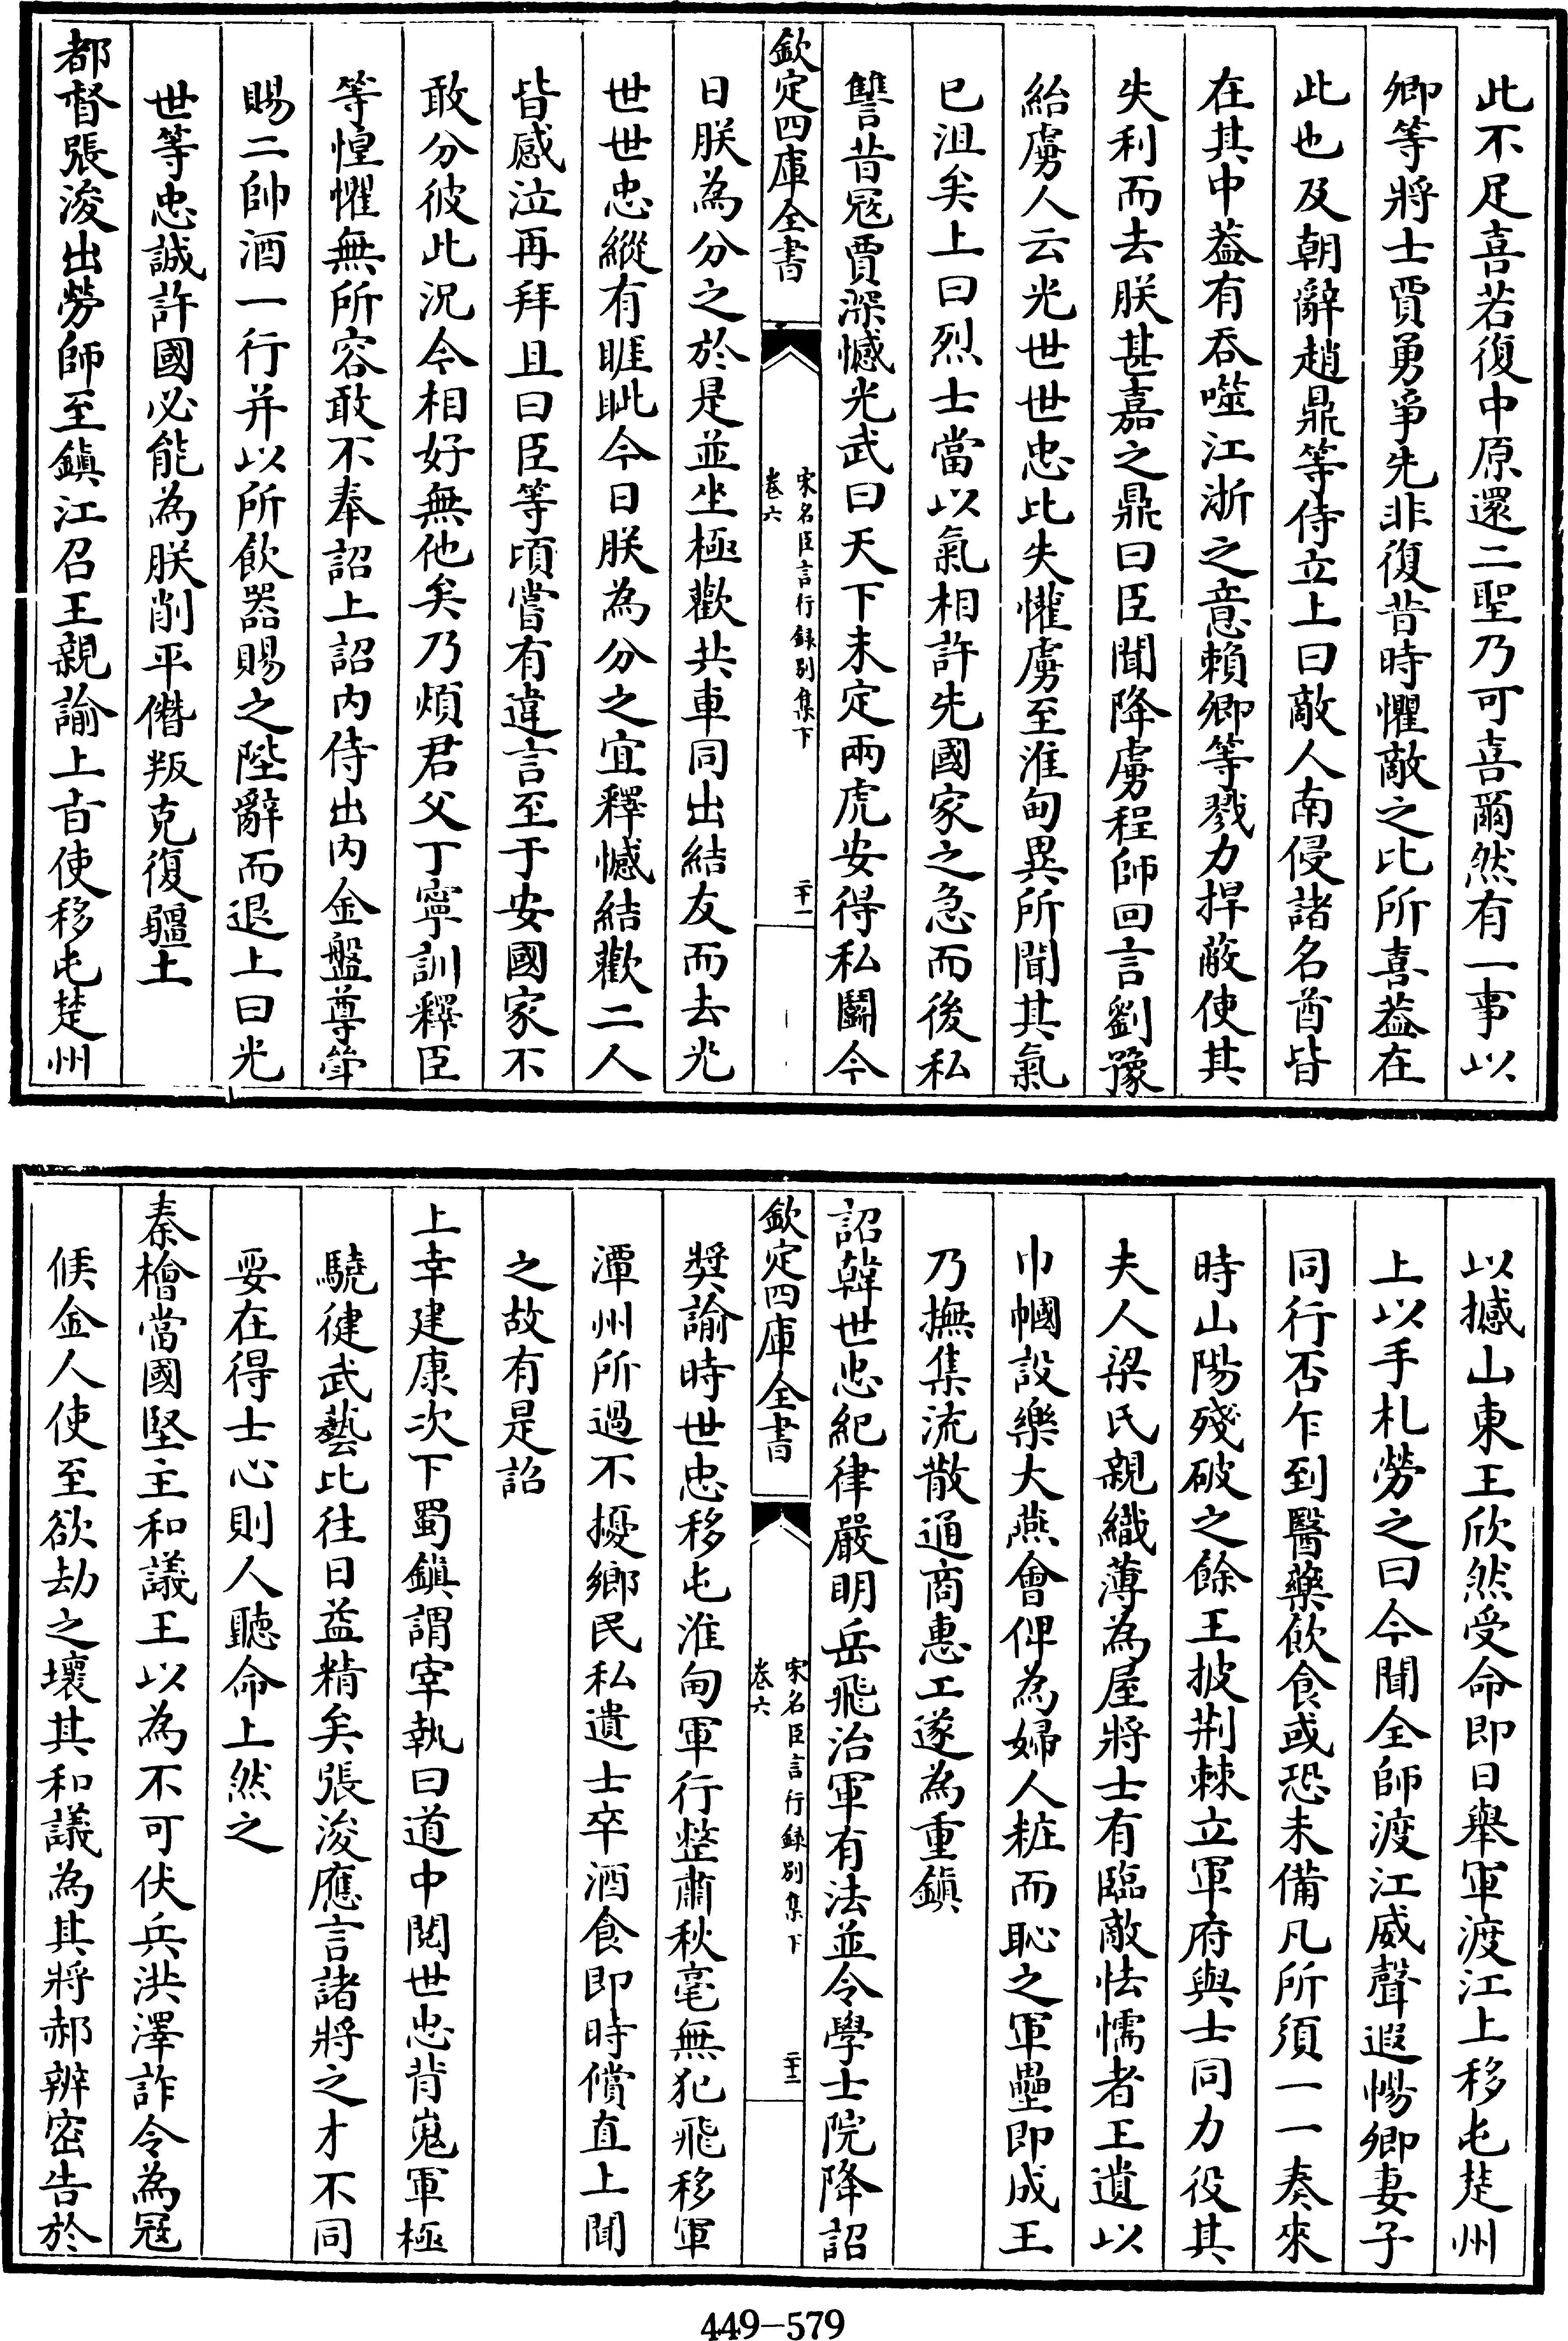 此不足喜若復中原還二聖乃可喜爾然有一事以
卿等將士賈勇爭先非復昔時懼敵之比所喜葢在
此也及朝辭趙鼎等侍立上曰敵人南侵諸名酋皆
在其中葢有吞噬江浙之意賴卿等戮力捍蔽使其
失利而去朕甚嘉之鼎曰臣聞降虜程師回言劉豫
紿虜人云光世世忠比失懽虜至淮甸異所聞其氣
已沮矣上曰烈士當以氣相許先國家之急而後私
讐昔寇賈深憾光武曰天下未定兩虎安得私鬭今
欽定四庫全書
宋名臣言行録別集下
卷六
二十一
日朕為分之於是並坐極歡共車同出結友而去光
世世忠縱有睚眦今日朕為分之宜釋憾結歡二人
皆感泣再拜且曰臣等頃嘗有違言至于安國家不
敢分彼此況今相好無他矣乃煩君父丁寧訓釋臣
等惶懼無所容敢不奉詔上詔内侍出内金盤尊斝
賜二帥酒一行并以所飲器賜之陛辭而退上曰光
世等忠誠許國必能為朕削平僭叛克復疆土
都督張浚出勞師至鎮江召王親諭上㫖使移屯楚州
以撼山東王欣然受命即日舉軍渡江上移屯楚州
上以手札勞之曰今聞全師渡江威聲遐暢卿妻子
同行否乍到醫藥飲食或恐未備凡所須一一奏來
時山陽殘破之餘王披荆棘立軍府與士同力役其
夫人梁氏親織薄為屋將士有臨敵怯懦者王遺以
巾幗設樂大燕會俾為婦人粧而恥之軍壘即成王
乃撫集流散通商惠工遂為重鎮
詔韓世忠紀律嚴明岳飛治軍有法並令學士院降詔
欽定四庫全書
宋名臣言行録別集下
卷六
二十二
奬諭時世忠移屯淮甸軍行整肅秋毫無犯飛移軍
潭州所過不擾鄉民私遺士卒酒食即時償直上聞
之故有是詔
上幸建康次下蜀鎮謂宰執曰道中閲世忠背嵬軍極
驍健武藝比往日益精矣張浚應言諸將之才不同
要在得士心則人聽命上然之
秦檜當國堅主和議王以為不可伏兵洪澤詐令為寇
候金人使至欲刼之壞其和議為其將郝辨密告於
449-579